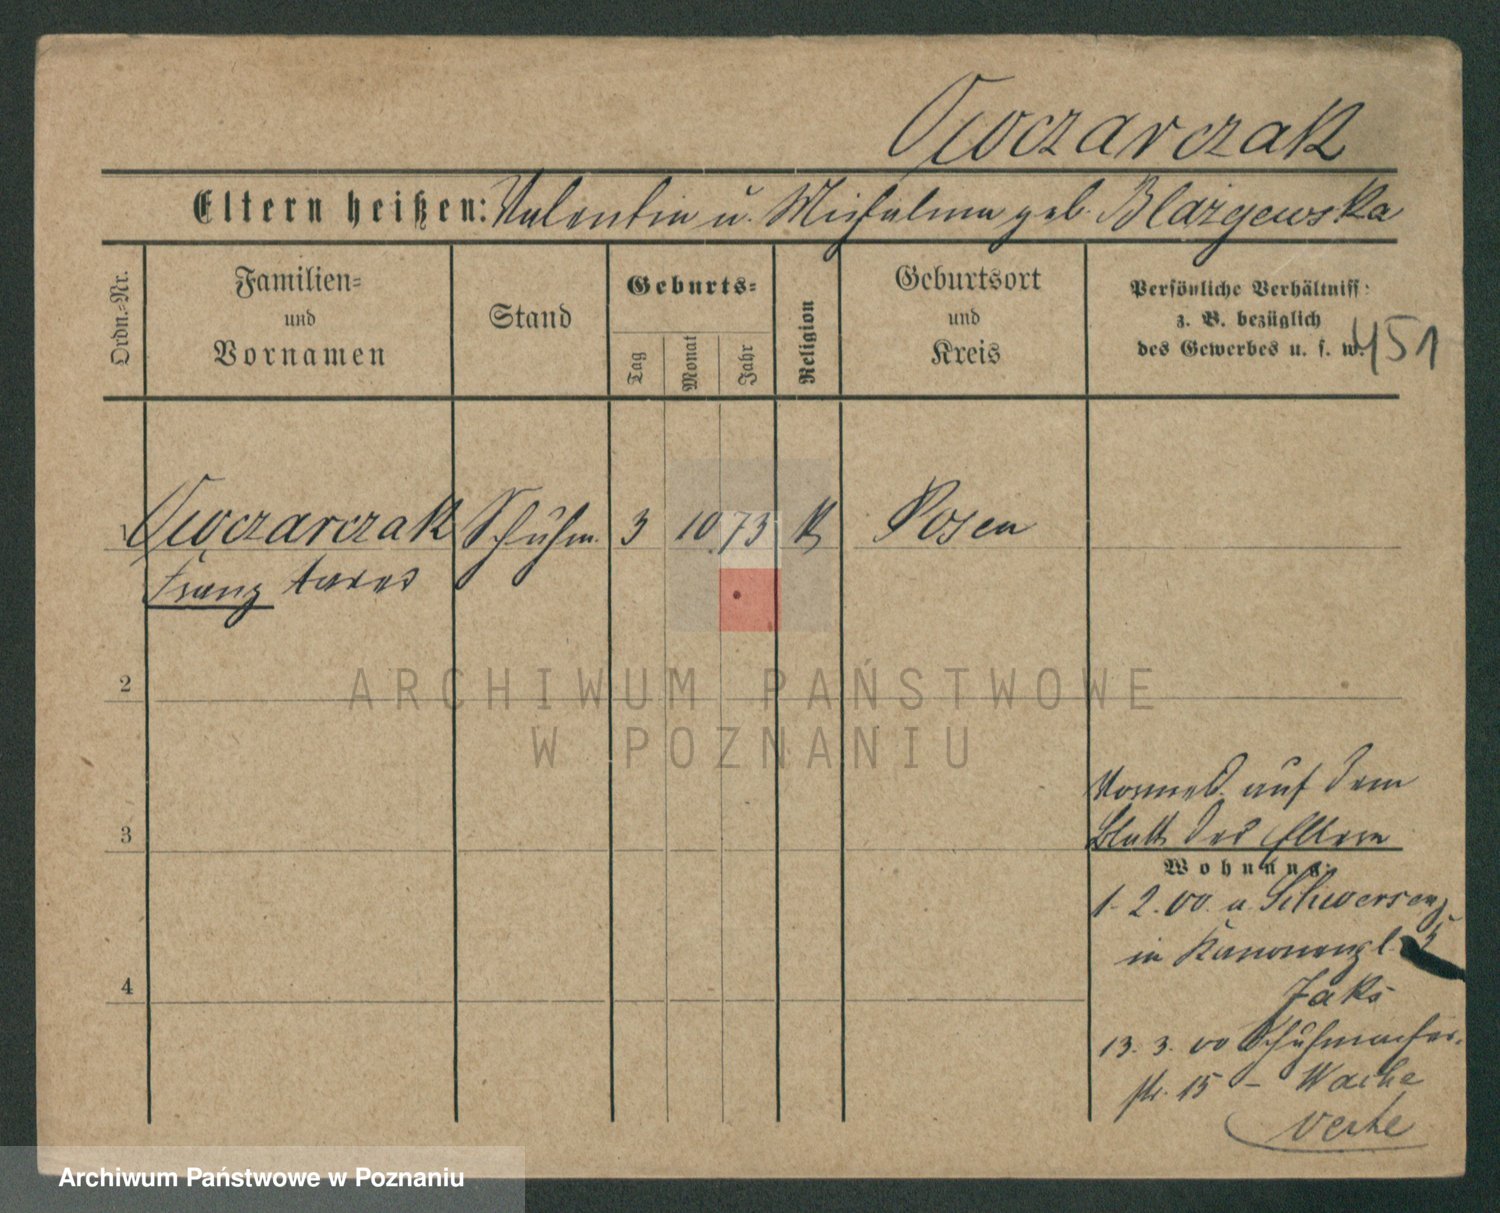 Owczarczak
Eltern heißen: Valentin u. Michalina geb. Blażejewska
Ordn.-Nr.
Familien- und Vornamen
Stand
Geburts-
Tag
Monat
Jahr
Religion
Geburtsort und Kreis
Persönliche Verhältniss:
z. B. bezüglich
des Gewerbes u. s. w.
451
1 Owczarczak Schuhm. 3 10 73 K Posen
Franz
2
3
4
Vormeld. auf dem
Blatt der Eltern
Wohnung:
1. 2. 00. a. Schwersenz
in Kanonenpl. 5
Jaks
13. 3. 00 Schuhmacher-
str. 15 – Wache
ARCHIWUM PAŃSTWOWE
W POZNANIU
Archiwum Państwowe w Poznaniu